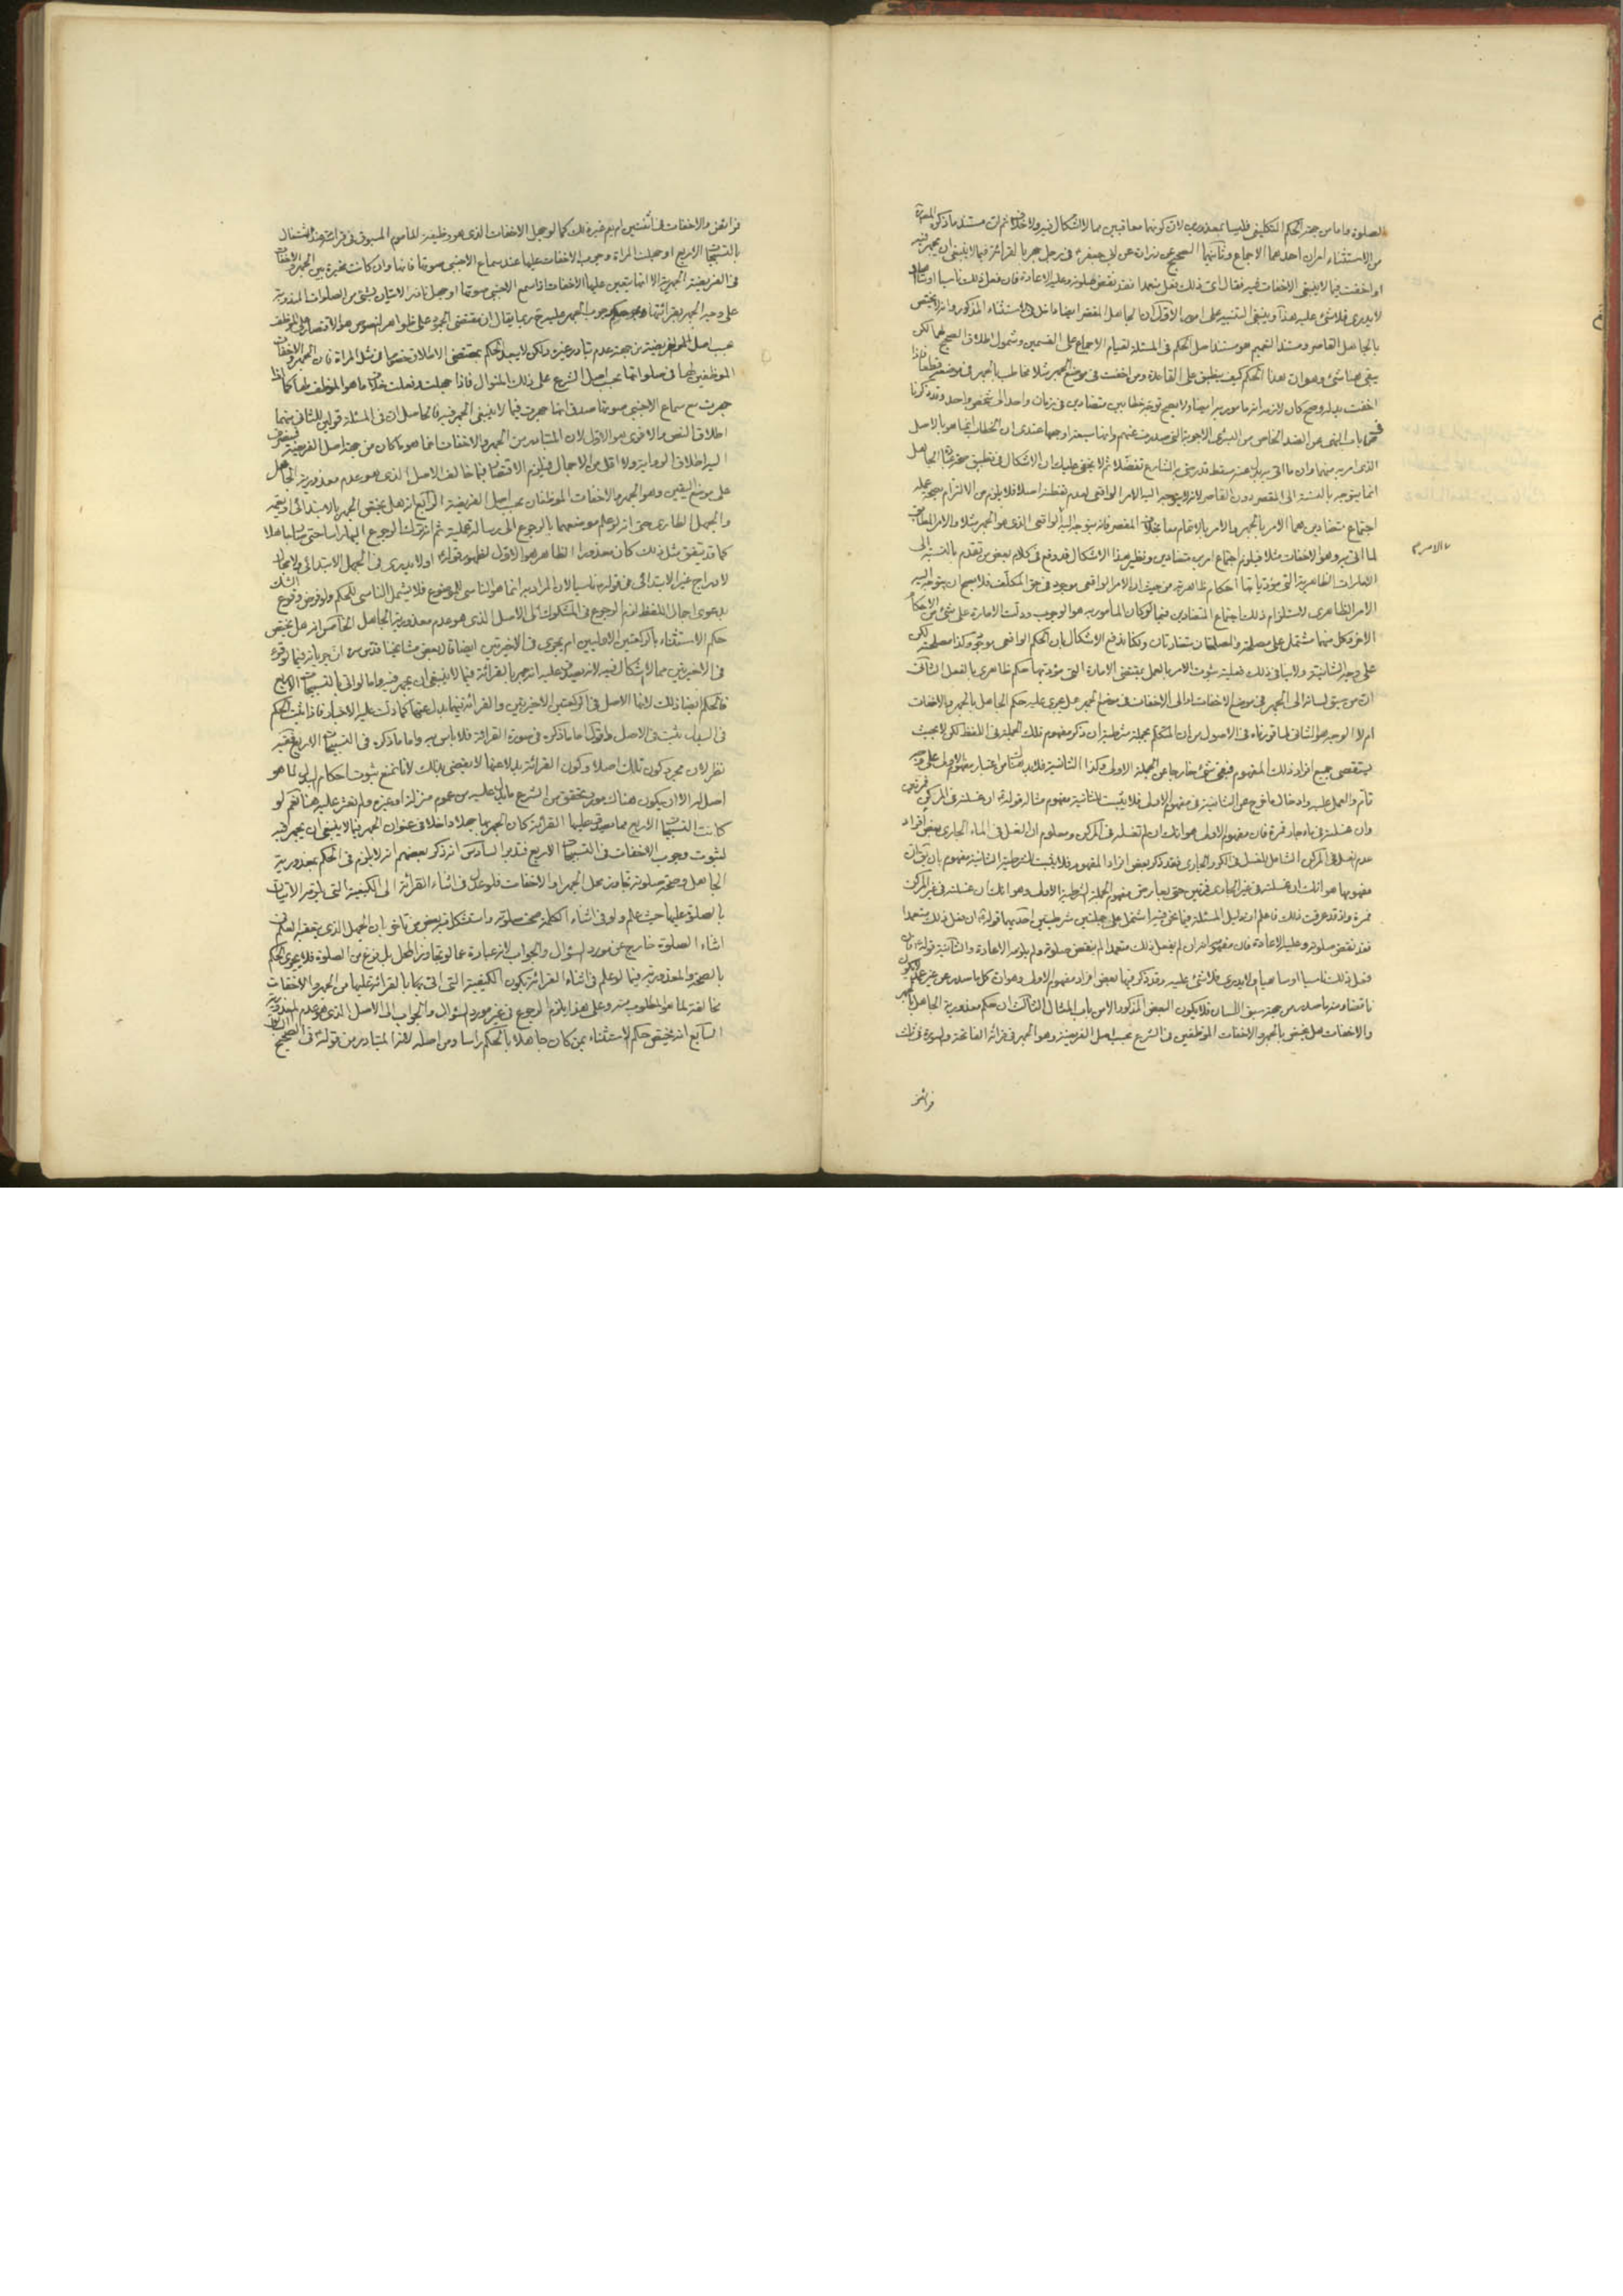 الصلوة واما من جهة الحكم التكليفى فليسا بمعذورين لان كونهما معاقبين مما لا اشكال فيه ولا خلاف ثم ان مستند ما ذكر المعذورية
من الاستثناء امران احدهما الاجماع وثانيهما الصحيح عن زرارة عن ابى جعفر ع فى رجل جهر بالقرائة فيما لا ينبغى ان يجهر فيه
او اخفت فيما لا ينبغى الاخفات فيه فقال اى ذلك فعل متعمدا فقد نقض صلوته وعليه الاعادة فان فعل ذلك ناسيا او ساهيا او
لا يدرى فلا شئ عليه هذا وينبغى التنبيه على امور الاول ان الجاهل المقصر ايضا داخل فى الاستثناء المذكور وانه لا يختص
بالجاهل القاصر ومستند التعميم هو مستند اصل الحكم فى المسئلة لقيام الاجماع على القسمين وشمول اطلاق الصحيح لهما لكن
بقى هنا شئ وهو ان هذا الحكم كيف ينطبق على القاعدة ومن اخفت فى موضع الجهر مثلا مخاطب بالجهر فى موضعه قطعا فاذا
اخفت بدله وصح كان لازمه انه مامور به ايضا ولا يصح توجه خطابين متضادين فى زمان واحد الى شخص واحد وقد ذكرنا
فى باب النهى عن الضد الخاص من المبحث الاجوبة التى صدرت عنهم وانها سبعة اوجهها عندى ان الخطاب انما هو بالاصل
الذى امر به منهما وان ما اتى به بدل عنه مسقط قد رضى به الشارع تفضلا ثم لا يخفى عليك ان الاشكال فى تطبيق معذورية الجاهل
انما يتوجه بالنسبة الى المقصر دون القاصر لانه لا يتوجه اليه الامر الواقعى لعدم تفطنه اصلا فلا يلزم من الالتزام بصحة عمله
اجتماع متضادين هما الامر بالجهر والامر بالاتمام معا بخلاف المقصر فانه يتوجه اليه الواقعى الذى هو الجهر مثلا والامر المطابق
لما اتى به وهو الاخفات مثلا فيلزم اجتماع امرين متضادين ونظير هذا الاشكال قد وقع فى كلام بعض من تقدم بالنسبة الى
الامارات الظاهرية التى مؤدياتها احكام ظاهرية من حيث ان الامر الواقعى موجود فى حق المكلف فلا يصح ان يتوجه اليه
الامر الظاهرى لاستلزام ذلك اجتماع المتضادين فيما لو كان المامور به هو الوجوب ودلت الامارة على شئ من الاحكام
الاخر وكل منهما مشتمل على مصلحة والمصلحتان متغايرتان وكنا ندفع الاشكال بان الحكم الواقعى موجود وكذا مصلحته لكن
على وجه الشانية ولا ينافى ذلك فعلية ثبوت الامر بالعمل بمقتضى الامارة التى مؤديها حكم ظاهرى بالفعل الثانى
ان من سبق لسانه الى الجهر فى موضع الاخفات او الى الاخفات فى موضع الجهر هل يجرى عليه حكم الجاهل بالجهر والاخفات
ام لا الوجه هو الثانى لما قررناه فى الاصول من ان المتكلم بجملة شرطية ان ذكر مفهوم تلك الجملة فى اللفظ لكن لا بحيث
يستقصى جميع افراد ذلك المفهوم فبقى شئ خارجا عن الجملة الاولى وكذا الثانية فلا بد هنا من اعتبار مفهوم الاولى على وجه
تام والعمل عليه وادخال ما خرج عن الثانية فى مفهوم الاولى فلا يثبت للثانية مفهوم مثاله قوله ع ان غسلته فى المركن فمرتين
وان غسلته فى ماء جار فمرة فان مفهوم الاولى هو انك ان لم تغسله فى المركن ومعلوم ان الغسل فى الماء الجارى بعض افراد
عدم الغسل فى المركن الشامل للغسل فى الكر والجارى فقد ذكر بعض افراد المفهوم فلا يثبت للشرطية الثانية مفهوم بان يقال ان
مفهومها هو انك ان غسلته فى غير الجارى فمرتين حتى يعارض مفهوم الجملة الشرطية الاولى وهو انك ان غسلته فى غير المركن
فمرة واذ قد عرفت ذلك فاعلم ان دليل المسئلة فيما نحن فيه اشتمل على جملتين شرطيتين احديهما قوله ع ان فعل ذلك متعمدا
فقد نقض صلوته وعليه الاعادة فان مفهومه انه ان لم يفعل ذلك متعمدا لم ينقض صلوته ولم يلزمه الاعادة والثانية قوله ع فان
فعل ذلك ناسيا او ساهيا او لا يدرى فلا شئ عليه وقد ذكر فيها بعض افراد مفهوم الاولى وهو ان كل ما صدر عن غير عمد لا يكون
ناقضا ومنه ما صدر من جهة سبق اللسان فلا يكون البعض المذكور الا من باب المثال الثالث ان حكم معذورية الجاهل بالجهر
والاخفات هل يختص بالجهر والاخفات الموظفين فى الشرع بحسب اصل الفريضة وهو الجهر فى قرائة الفاتحة والسورة فى تلك
فرائض
فرائض والاخفات فى اثنتين ام يعم غيره ذلك كما لو جهل الاخفات الذى هو وظيفة الماموم المسبوق فى قرائته عند اشتغال
بالتسبيحات الاربع او جهلت المراة وجوب الاخفات عليها عند سماع الاجنبى صوتها فانها وان كانت مخيرة بين الجهر والاخفات
فى الفريضة الجهرية الا انها يتعين عليها الاخفات اذا سمع الاجنبى صوتها او جهل ناذر الاتيان بشئ من الصلوات المنذورة
على وجه الجهر بقرائتها وجوب الجهر عليه ربما يقال ان مقتضى الجمود على ظواهر النصوص هو الاقتصار على الموظف
بحسب اصل الفريضة من جهة عدم تبادر غيره ولكن لا يبعد الحكم بمقتضى الاطلاق خصوصا فى مثل المراة فان الجهر والاخفات
الموظفين لها فى صلواتها بحسب اصل الشرع على ذلك المنوال فاذا جهلت وفعلت خلاف ما هو الموظف لها كما اذا
جهرت مع سماع الاجنبى صوتها صدق انها جهرت فيما لا ينبغى الجهر فيه فالحاصل ان فى المسئلة قولين للثانى منهما
اطلاق النص والاقوى هو الاول لان المتبادر من الجهر والاخفات انما هو ما كان من جهة اصل الفريضة فينصرف
اليه اطلاق الرواية ولا اقل من الاجمال فيلزم الاقتصار فيما خالف الاصل الذى هو عدم معذورية الجاهل
على موضع اليقين وهو الجهر والاخفات الموظفان بحسب اصل الفريضة الرابع انه هل يختص الجهر بالابتدائى او يعمه
والجهل الطارى حتى انه لو علم موضعهما بالرجوع الى رسالة عملية ثم انه ترك الرجوع اليها راسا حتى نسيها جاهلا
كما قد يتفق مثل ذلك كان معذورا الظاهر هو الاول لظهور قوله ع او لا يدرى فى الجهل الابتدائى ولا مجال
لادراج غير الابتدائى فى قوله ناسيا لان المراد به انما هو الناسى للموضوع فلا يشمل الناسى للحكم ولو فرض وقوع الشك
بدعوى اجمال اللفظ لزم الرجوع فى المشكوك الى الاصل الذى هو عدم معذورية الجاهل الخامس انه هل يختص
حكم الاستثناء بالركعتين الاوليين ام يجرى فى الاخيرتين ايضا قال بعض مشايخنا قدس سره ان جريانه فيما لو قرء
فى الاخيرتين مما لا اشكال فيه لانه يصدق عليه انه جهر بالقرائة فيما لا ينبغى ان يجهر فيه واما لو اتى بالتسبيحات الاربع
فالحكم ايضا ذلك لانها الاصل فى الركعتين الاخيرتين والقرائة فيهما بدل عنها كما دلت عليه الاخبار فاذا ثبت الحكم
فى البدل ثبت فى الاصل واقول اما ما ذكره فى صورة القرائة فلا باس به واما ما ذكره فى التسبيحات الاربع ففيه
نظر لان مجرد كون تلك اصلا وكون القرائة بدلا عنها لا يقضى بذلك لانا نمنع ثبوت احكام البدل لما هو
اصل له الا ان يكون هناك مورد يتحقق من الشرع ما يدل عليه من عموم منزلة او غيره ولم نعثر عليه هنا نعم لو
كانت التسبيحات الاربع مما يصدق عليها القرائة كان الجهر بها جهلا داخلا فى عنوان الجهر فيما لا ينبغى ان يجهر فيه
لثبوت وجوب الاخفات فى التسبيحات الاربع فتدبر السادس انه ذكر بعضهم انه لا يلزم فى الحكم بمعذورية
الجاهل وصحة صلوته تجاوز محل الجهر او الاخفات فلو عدل فى اثناء القرائة الى الكيفية التى يلزمه الاتيان
بالصلوة عليها حيث علم ولو فى اثناء الكلمة صحت صلوته واستشكل فيه بعض من تاخر بان الجهل الذى يتعقبه العلم فى
اثناء الصلوة خارج عن مورد السؤال والجواب لانه عبارة عما لو تجاوز المحل بل فرغ من الصلوة فلا يجرى الحكم
بالصحة والمعذورية فيما لو علم فى اثناء القرائة بكون الكيفية التى اتى بها بالقرائة عليها من الجهر والاخفات
مخالفة لما هو المطلوب منه وعلى هذا يلزم الرجوع فى غير مورد السؤال والجواب الى الاصل الذى هو عدم المعذورية
السابع انه يختص حكم الاستثناء بمن كان جاهلا بالحكم راسا ومن اصله لانه المتبادر من قوله ع فى الصحيح